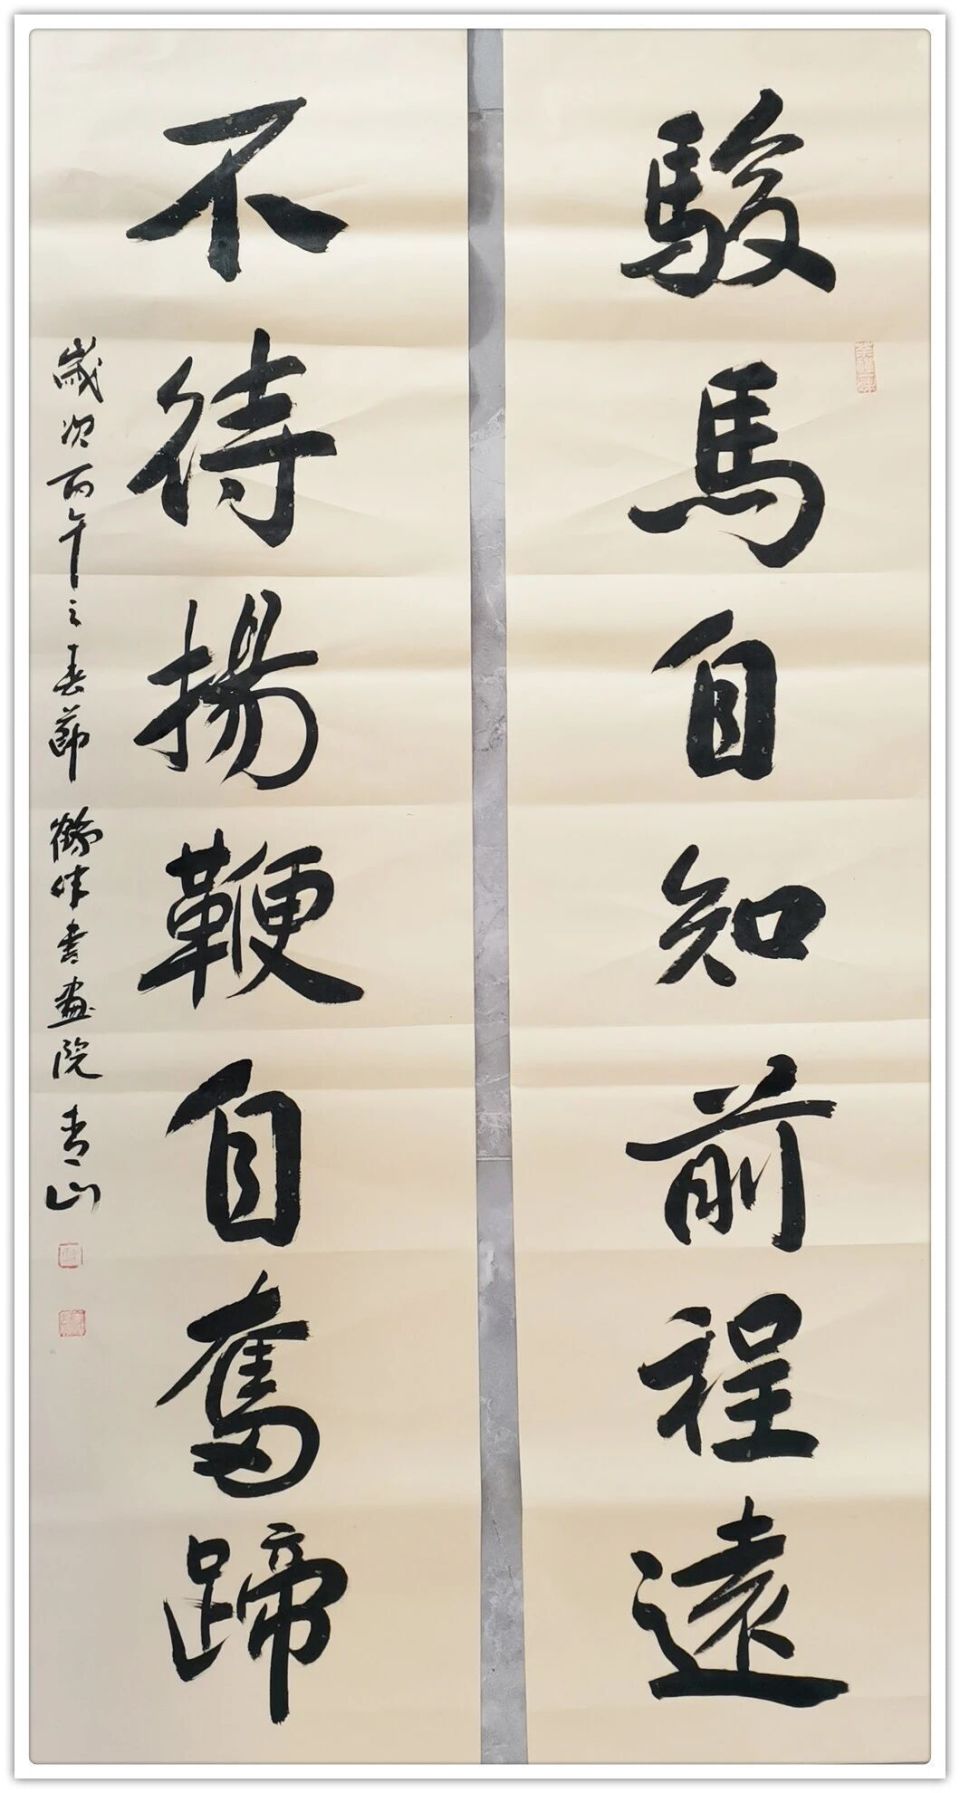 駿馬自知前程遠
不待揚鞭自奮蹄
歲次丙午之春節 鶴伴書畫院 青山